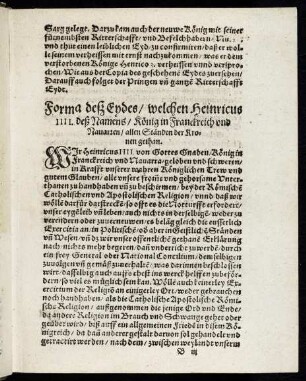 Sarg gelegt. Darzu kam auch der neuwe König mit seiner
fürnembsten Ritterschafft/ vnd Befelchhabern/
vnd thut einen leiblichen Eyd/ zu confirmiren/ daß er wol-
le seinem verheissen mit ernst nachkommen/ was er dem
verstorbenen Könige Henrico 3. verheissen vnnd verspro-
chen/ Wie auß der Copia des geschehenẽ Eydes zuersehen/
Darauff auch folget der Printzen vñ gantzẽ Ritterschafft
Eydt.
Forma deß Eydes/ welchen Heinricus
IIII. deß Namens/ König in Franckreich vnd
Nauarren/ allen Ständen der Kro-
nen gethan.
WIr Heinricus IIII. von Gottes Gnaden/ König in
Franckreich vnd Nauarra/ geloben vnd schweren
in Krafft vnserer wahren Königlichen Trew vnd
gutem Glauben/ alle vnsere trewe vnd gehorsame Vnter-
thanen zu handhaben vñ zu beschirmen/ bey der Römische
Catholischen vnd Apostolischen Religion/ vnnd daß wir
wölle dorfür darstrecké so offt es die Notturfft erfordert/
vnser eygen leib vñ leben/ auch nichts in derselbige/ weder zu
verendern oder zuverneuwern/ es beläg gleich die eusserlich
Exercitia an/ in Politische/ oñ aber in Geistlichẽ Ständen
vñ Wesen/ vñ dz wir vnser offentliche gethane Erklärung
nach nichts mehr begeren/ dañ vnterricht zuwerdẽ/ durch
ein frey General oder National Concilium/ dem selbigen
zuvolgen vñ gemäß zuverhaltẽ/ was darinnen beschlossen
wirt/ dasselbig auch auffs ehest ins werck helffen zubeför-
dern/ so viel es müglich sein kan. Wölle auch keiner ley Ex-
ercitium der Religiõ an einigerley Ort/ weder gebrauchen
noch handhaben/ als die Catholische Apostolische Römi-
sche Religion/ außgenommen die jenige Ort vnd Ende/
da andere Religion im Brauch vnd Schwang gehet oder
geübet wird/ biß auff ein allgemeinen Friede in disem Kö-
nigreich/ da daß an andern gestalt darvon sol gehandelt vnd
getractirt werden/ nach dem/ zwischen weylandt vnserm
D iij